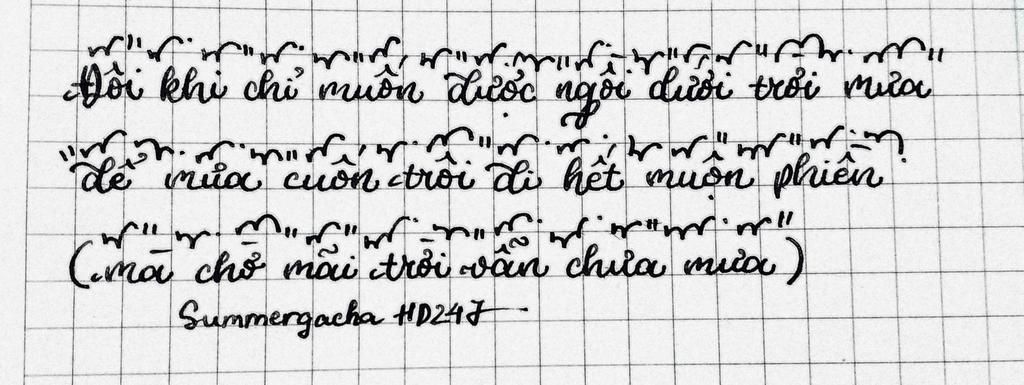 Đôi khi chỉ muốn được ngồi dưới trời mưa
để mưa cuốn trôi đi hết muộn phiền
(mà chờ mãi trời vẫn chưa mưa)
Summergacha HD247